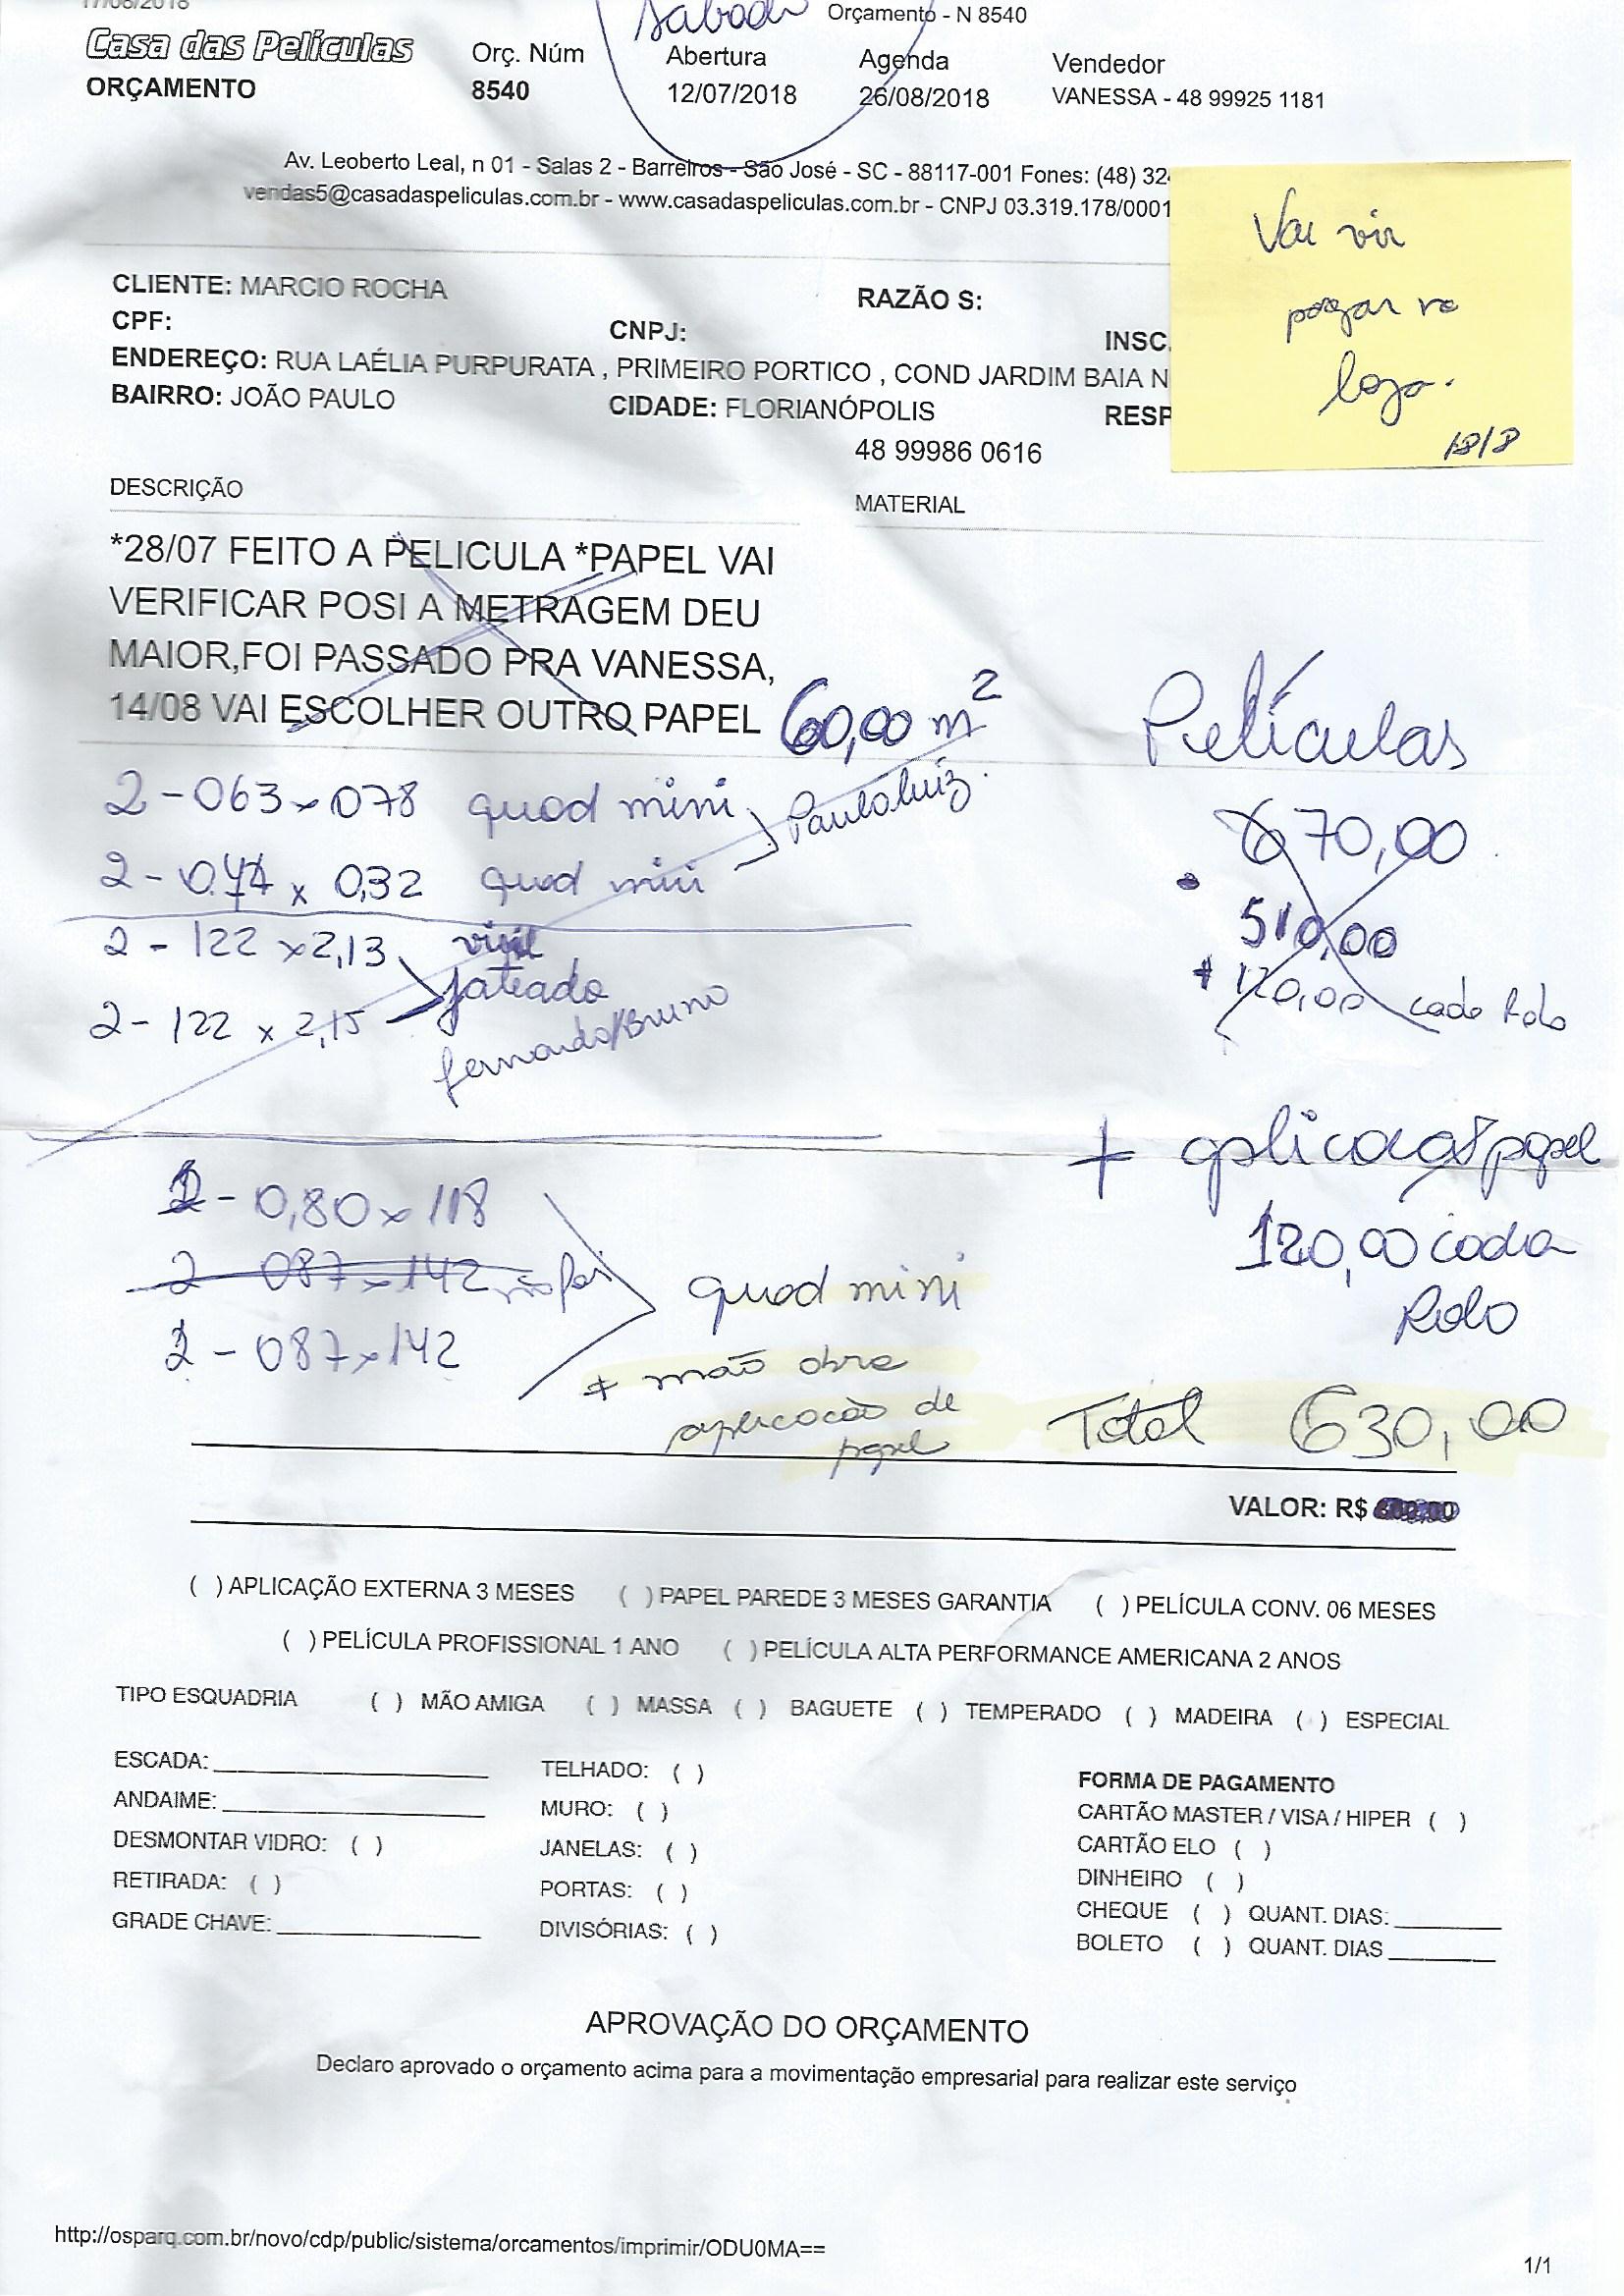 17/08/2018
Orçamento - N 8540
Sabado
Casa das Películas
ORÇAMENTO
Orç. Núm
8540
Abertura
12/07/2018
Agenda
26/08/2018
Vendedor
VANESSA - 48 99925 1181
Av. Leoberto Leal, n 01 - Salas 2 - Barreiros - São José - SC - 88117-001 Fones: (48) 32
vendas5@casadaspeliculas.com.br - www.casadaspeliculas.com.br - CNPJ 03.319.178/0001
Vai vir
pagar na
loja.
18/8
CLIENTE: MARCIO ROCHA
RAZÃO S:
CPF:
CNPJ:
INSC.
ENDEREÇO: RUA LAÉLIA PURPURATA , PRIMEIRO PORTICO , COND JARDIM BAIA N
BAIRRO: JOÃO PAULO
CIDADE: FLORIANÓPOLIS
RESP
48 99986 0616
DESCRIÇÃO
MATERIAL
*28/07 FEITO A PELICULA *PAPEL VAI
VERIFICAR POSI A METRAGEM DEU
MAIOR,FOI PASSADO PRA VANESSA,
14/08 VAI ESCOLHER OUTRO PAPEL
60,00 m²
Películas
2 - 063 x 078 quad mini
Paulo luiz.
670,00
2 - 0.44 x 0,32 quad mini
510,00
2 - 122 x 2,13 vinil
jateado
+ 120,00 cada Rolo
2 - 122 x 2,15
fernando/Bruno
+ aplicação papel
120,00 cada
Rolo
2 - 0,80 x 118
2 087 x 142 não foi
2 - 087 x 142
quad mini
+ mão obra
aplicação de
papel
Total 630,00
VALOR: R$
( ) APLICAÇÃO EXTERNA 3 MESES ( ) PAPEL PAREDE 3 MESES GARANTIA ( ) PELÍCULA CONV. 06 MESES
( ) PELÍCULA PROFISSIONAL 1 ANO ( ) PELÍCULA ALTA PERFORMANCE AMERICANA 2 ANOS
TIPO ESQUADRIA ( ) MÃO AMIGA ( ) MASSA ( ) BAGUETE ( ) TEMPERADO ( ) MADEIRA ( ) ESPECIAL
ESCADA:
ANDAIME:
DESMONTAR VIDRO: ( )
RETIRADA: ( )
GRADE CHAVE:
TELHADO: ( )
MURO: ( )
JANELAS: ( )
PORTAS: ( )
DIVISÓRIAS: ( )
FORMA DE PAGAMENTO
CARTÃO MASTER / VISA / HIPER ( )
CARTÃO ELO ( )
DINHEIRO ( )
CHEQUE ( ) QUANT. DIAS:
BOLETO ( ) QUANT. DIAS
APROVAÇÃO DO ORÇAMENTO
Declaro aprovado o orçamento acima para a movimentação empresarial para realizar este serviço
http://osparq.com.br/novo/cdp/public/sistema/orcamentos/imprimir/ODU0MA==
1/1